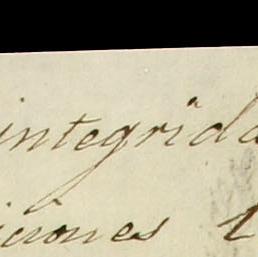 integrida
iciones